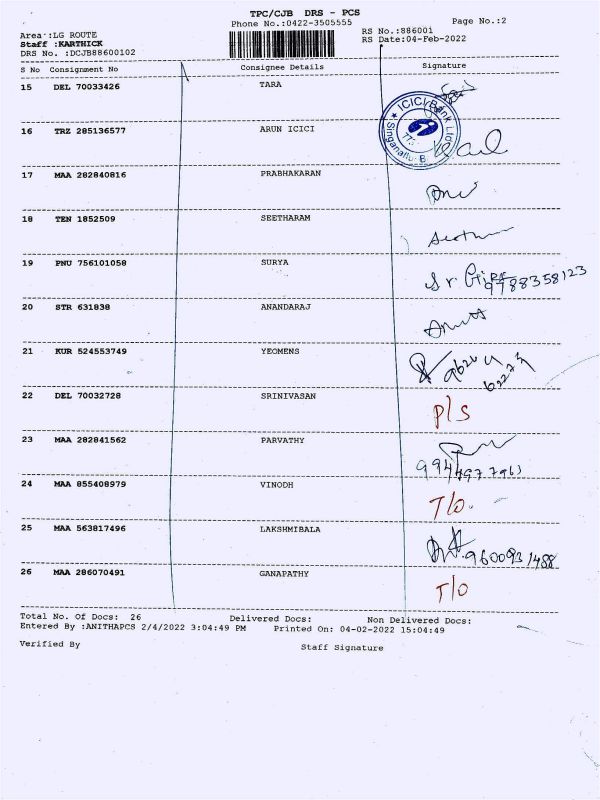 TPC/CJB DRS - PCS
Phone No.:0422-3505555
Page No.:2
Area :LG ROUTE
RS No.:886001
Staff :KARTHICK
RS Date:04-Feb-2022
DRS No. :DCJB88600102
S No Consignment No Consignee Details Signature
15 DEL 70033426 TARA
ICICI Bank Ltd
Singanallur B
16 TRZ 285136577 ARUN ICICI
17 MAA 282840816 PRABHAKARAN
18 TEN 1852509 SEETHARAM
19 PNU 756101058 SURYA
9788358123
20 STR 631838 ANANDARAJ
21 KUR 524553749 YEOMENS
22 DEL 70032728 SRINIVASAN P/S
23 MAA 282841562 PARVATHY
24 MAA 855408979 VINODH T/O.
25 MAA 563817496 LAKSHMIBALA 9600931488
26 MAA 286070491 GANAPATHY T/O
Total No. Of Docs: 26 Delivered Docs: Non Delivered Docs:
Entered By :ANITHAPCS 2/4/2022 3:04:49 PM Printed On: 04-02-2022 15:04:49
Verified By Staff Signature